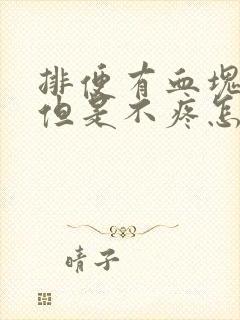 排便有血块
但是不疼怎
晴子